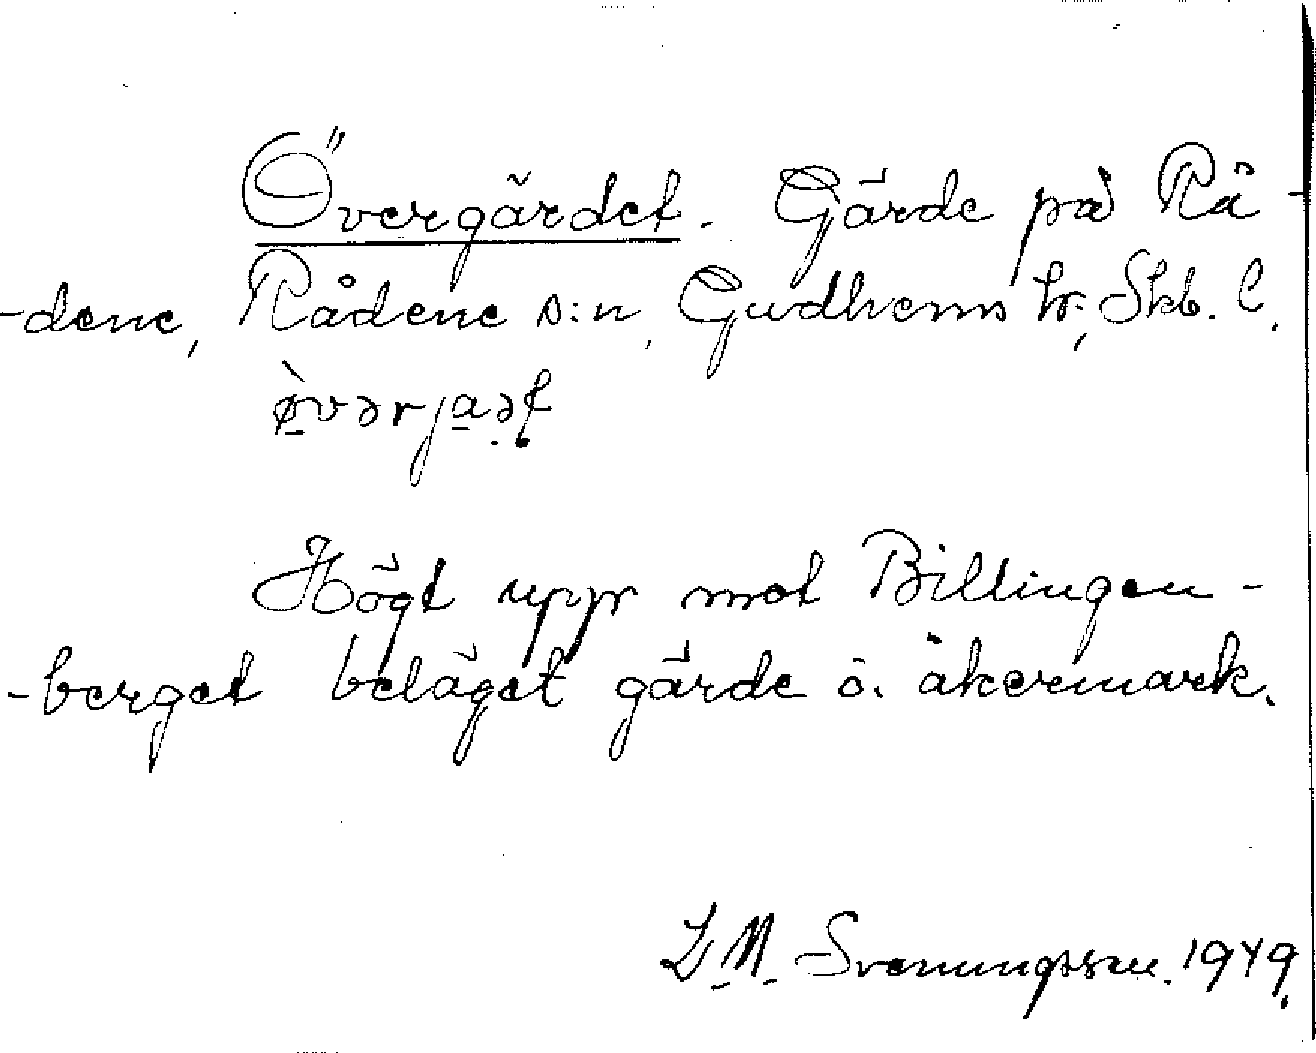 Övergärdet. Gärde på Rå-
-dene, Rådene s:n, Gudhems hr, Skb. l.
ø̀vərjaət
Högt upp mot Billingen-
-berget beläget gärde o. åkermark.
D. N. Svenungsson. 1949.